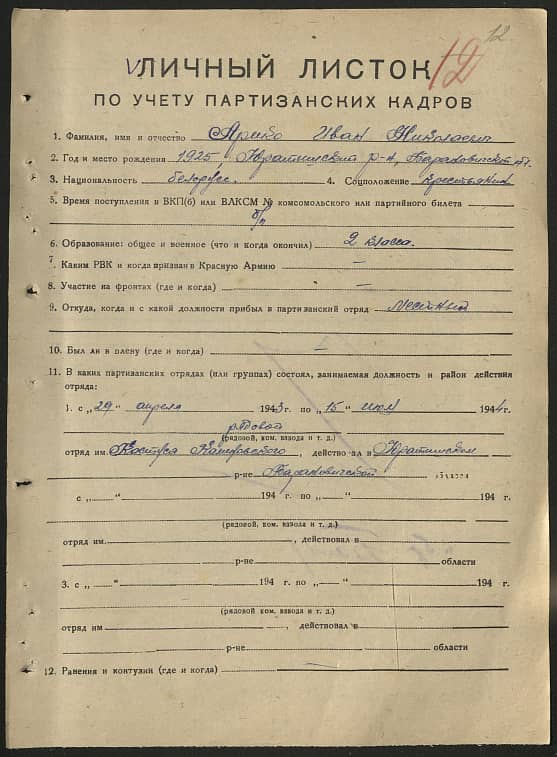 12
VЛИЧНЫЙ ЛИСТОК 12
ПО УЧЕТУ ПАРТИЗАНСКИХ КАДРОВ
1. Фамилия, имя и отчество Арико Иван Николаевич
2. Год и место рождения 1925, р-н,
3. Национальность белорус. 4. Соцположение крестьянин
5. Время поступления в ВКП(б) или ВЛКСМ № комсомольского или партийного билета
б/п
6. Образование: общее и военное (что и когда окончил) 2 класса.
7. Каким РВК и когда призван в Красную Армию —
8. Участие на фронтах (где и когда) —
9. Откуда, когда и с какой должности прибыл в партизанский отряд местный
10. Был ли в плену (где и когда) —
11. В каких партизанских отрядах (или группах) состоял, занимаемая должность и район действия
отряда:
1. с „29“ апреля 1943г. по „15“ июля 1944г.
рядовой
(рядовой, ком. взвода и т. д.)
отряд им. Костуся Калиновского, действовал в
р-не области
с „ “ 194 г. по „ “ 194 г.
(рядовой, ком. взвода и т. д.)
отряд им. , действовал в
р-не области
3. с „ “ 194 г. по „ “ 194 г.
(рядовой, ком. взвода и т. д.)
отряд им , действовал в
р-не области
12. Ранения и контузии (где и когда) —